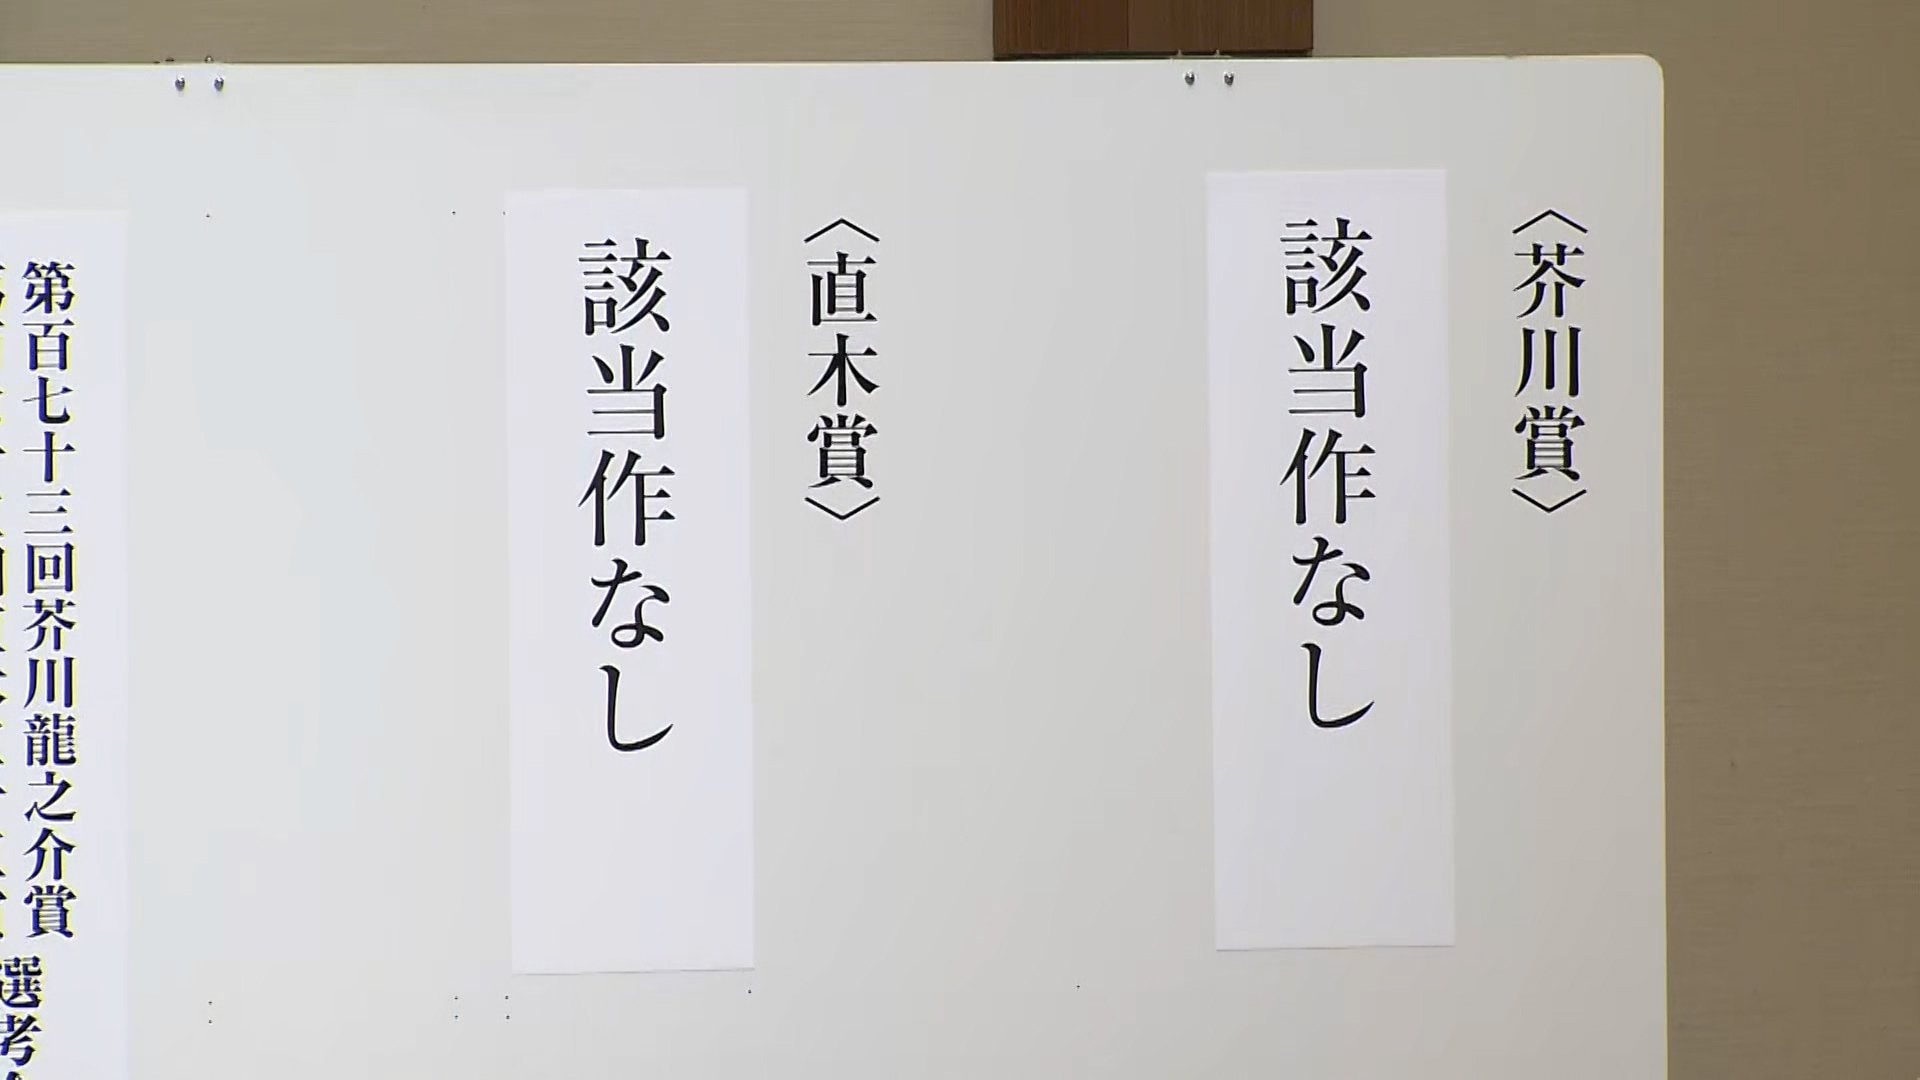 〈芥川賞〉
該当作なし
〈直木賞〉
該当作なし
第百七十三回芥川龍之介賞
選考